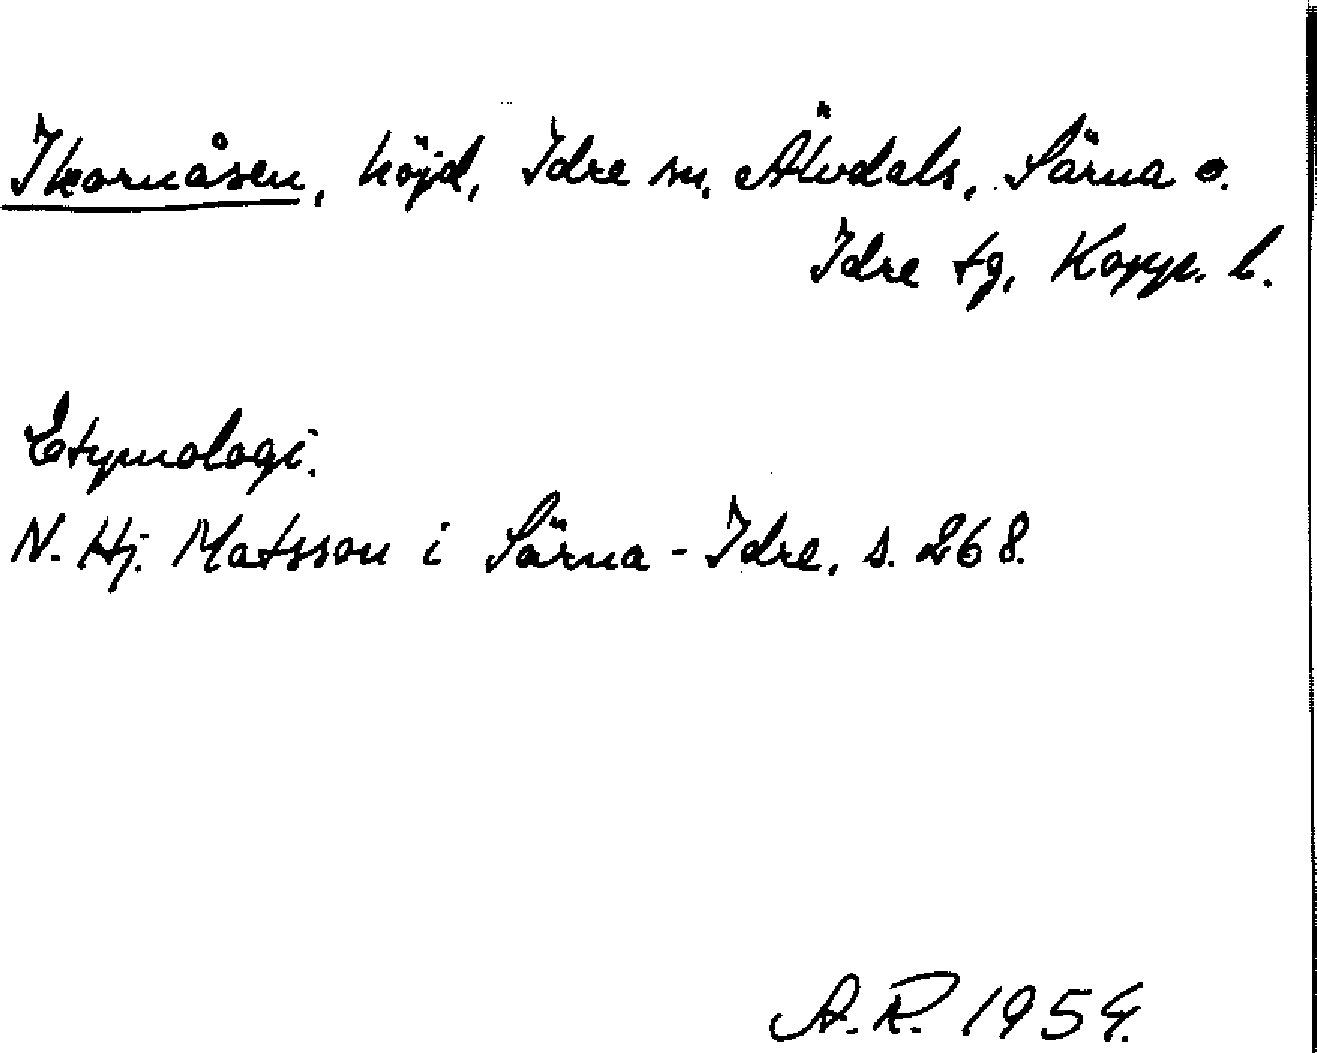 Ikornåsen, höjd, Idre sn, Älvdals, Särna o.
Idre tg, Kopp. l.
Etymologi.
N. Hj. Matsson i Särna - Idre, s. 268.
A. R. 1954.